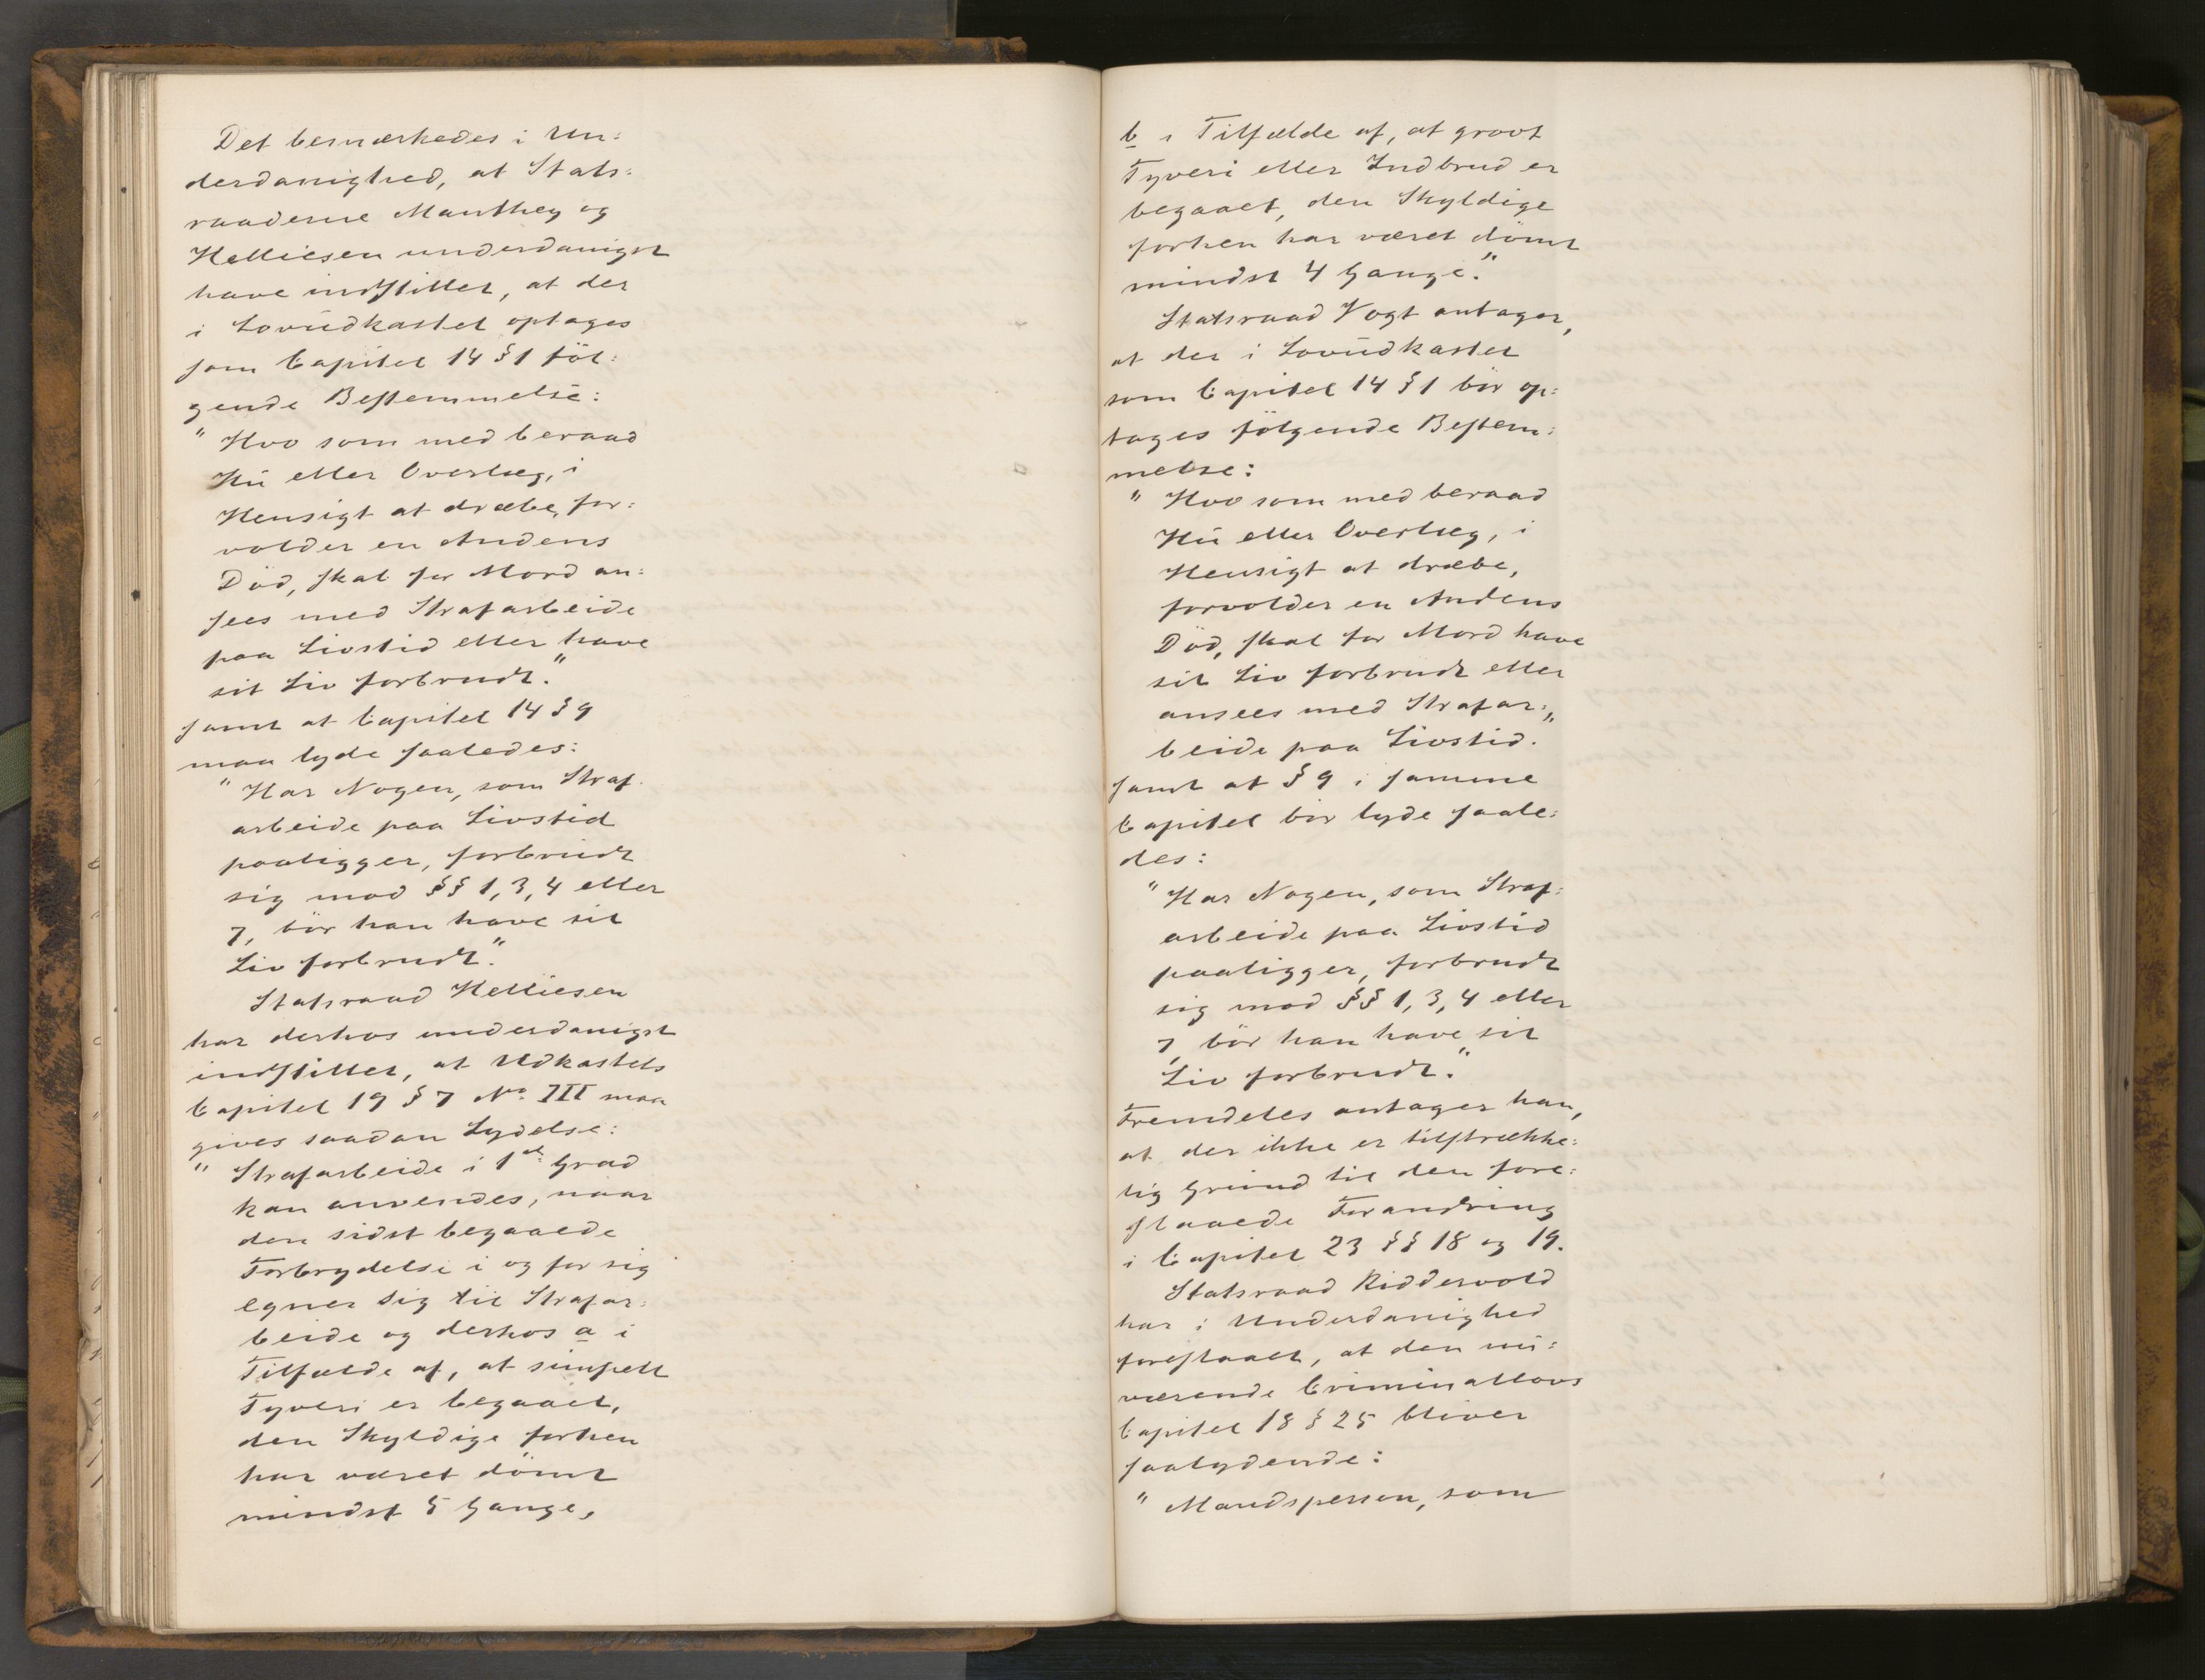 Det bemærkedes i Un:
derdanighed, at Stats:
raaderne Manthey og
Helliesen underdanigst
have indstillet, at der
i Lovudkastet optages
som Capitel 14 § 1 föl:
gende Bestemmelse:
" Hvo som med beraad
Hu eller Overlæg, i
Hensigt at dræbe, for:
volder en Andens
Död, skal for Mord an:
sees med Strafarbeide
paa Livstid eller have
sit Liv forbrudt."
samt at Capitel 14 § 9
maa lyde saaledes:
" Har Nogen, som Straf
arbeide paa Livstid
paaligger, forbrudt
sig mod §§ 1, 3, 4 eller
7, bör han have sit
Liv forbrudt."
Statsraad Helliesen
har derhos underdanigst
indstillet, at Udkastets
Capitel 19 § 7 No. III maa
gives saadan Lydelse:
" Strafarbeide i 1ste Grad
kan anvendes, naar
den sidst begaaede
Forbrydelse i og for sig
egner sig til Strafar:
beide og derhos a i
Tilfælde af, at simpelt
Tyveri er begaaet,
den Skyldige forhen
har været dömt
mindst 5 Gange,
b i Tilfælde af, at grovt
Tyveri eller Indbrud er
begaaet, den Skyldige
forhen har været dömt
mindst 4 Gange."
Statsraad Vogt antager,
at der i Lovudkastet
som Capitel 14 § 1 bör op:
tages fölgende Bestem:
melse:
" Hvo som med beraad
Hu eller Overlæg, i
Hensigt at dræbe,
forvolder en Andens
Död, skal for Mord have
sit Liv forbrudt eller
ansees med Strafar:
beide paa Livstid."
samt at § 9 i samme
Capitel bör lyde saale:
des:
" Har Nogen, som Straf:
arbeide paa Livstid
paaligger, forbrudt
sig mod §§ 1, 3, 4 eller
7, bör han have sit
Liv forbrudt."
Fremdeles antager han,
at der ikke er tilstrække:
lig Grund til den fore:
slaaede Forandring
i Capitel 23 §§ 18 og 19.
Statsraad Riddervold
har i Underdanighed
foreslaaet, at den nu:
værende Criminallovs
Capitel 18 § 25 bliver
saalydende:
" Mandsperson, som